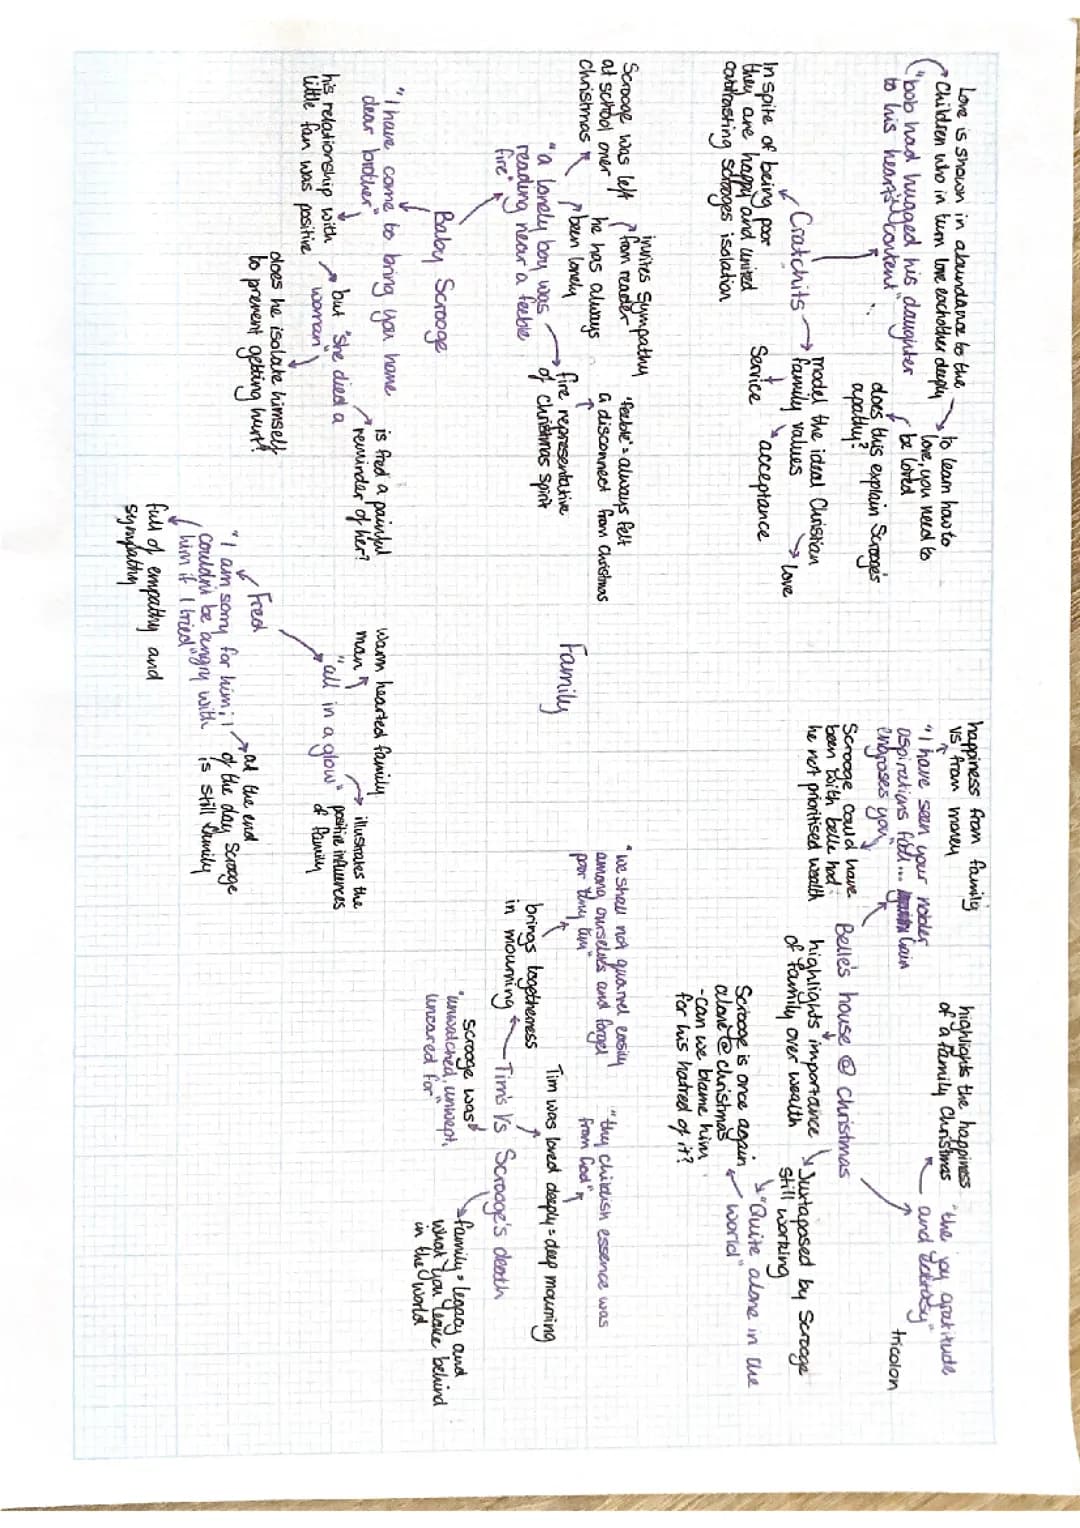 Love is shown in abundance to the
Children who in turn love eachother deeply
"bob had hugged his daughter
to his heart's content"
to learn how to
love, you need to
be loved
does this explain Scrooge's
apathy?
Cratchits
In spite of being poor
they are happy and united
contrasting scrooges isolation
model the ideal Christian
family values
love
Service
acceptance
Scrooge was left
at school over
christmas
invites sympathy
from reader
he has always
been lonely
"a lonely boy was
reading near a feeble
fire"
'feeble' = always felt
a disconnect from christmas
fire representative
of christmas spirit
Baby Scrooge
"I have come to bring you home
dear brother"
his relationship with
little fan was positive
but "she died a
woman"
is fred a painful
reminder of her?
does he isolate himself
to prevent getting hurt?
Family
Fred
"I am sorry for him; I
couldn't be angry with
him if I tried"
full of empathy and
sympathy
at the end
of the day Scrooge
is still family
warm hearted family
man
"all in a glow"
illustrates the
positive influences
of family
happiness from family
vs from money
"I have seen your nobler
aspirations fall... Gain
engrosses you"
Scrooge could have
been with belle had
he not prioritised wealth
Belle's house @ Christmas
highlights the happiness
of a family Christmas
"the joy gratitude
and ecstasy"
tricolon
highlights importance
of family over wealth
Juxtaposed by Scrooge
still working
"Quite alone in the
world"
Scrooge is once again
alone @ christmas
-can we blame him
for his hatred of it?
"we shall not quarrel easily
among ourselves and forget
poor tiny tim"
brings togetherness
in mourning
"thy childish essence was
from God"
Tim was loved deeply = deep mourning
Tim's Vs Scrooge's death
scrooge was
"unwatched, unwept,
uncared for"
family = legacy and
what you leave behind
in the world